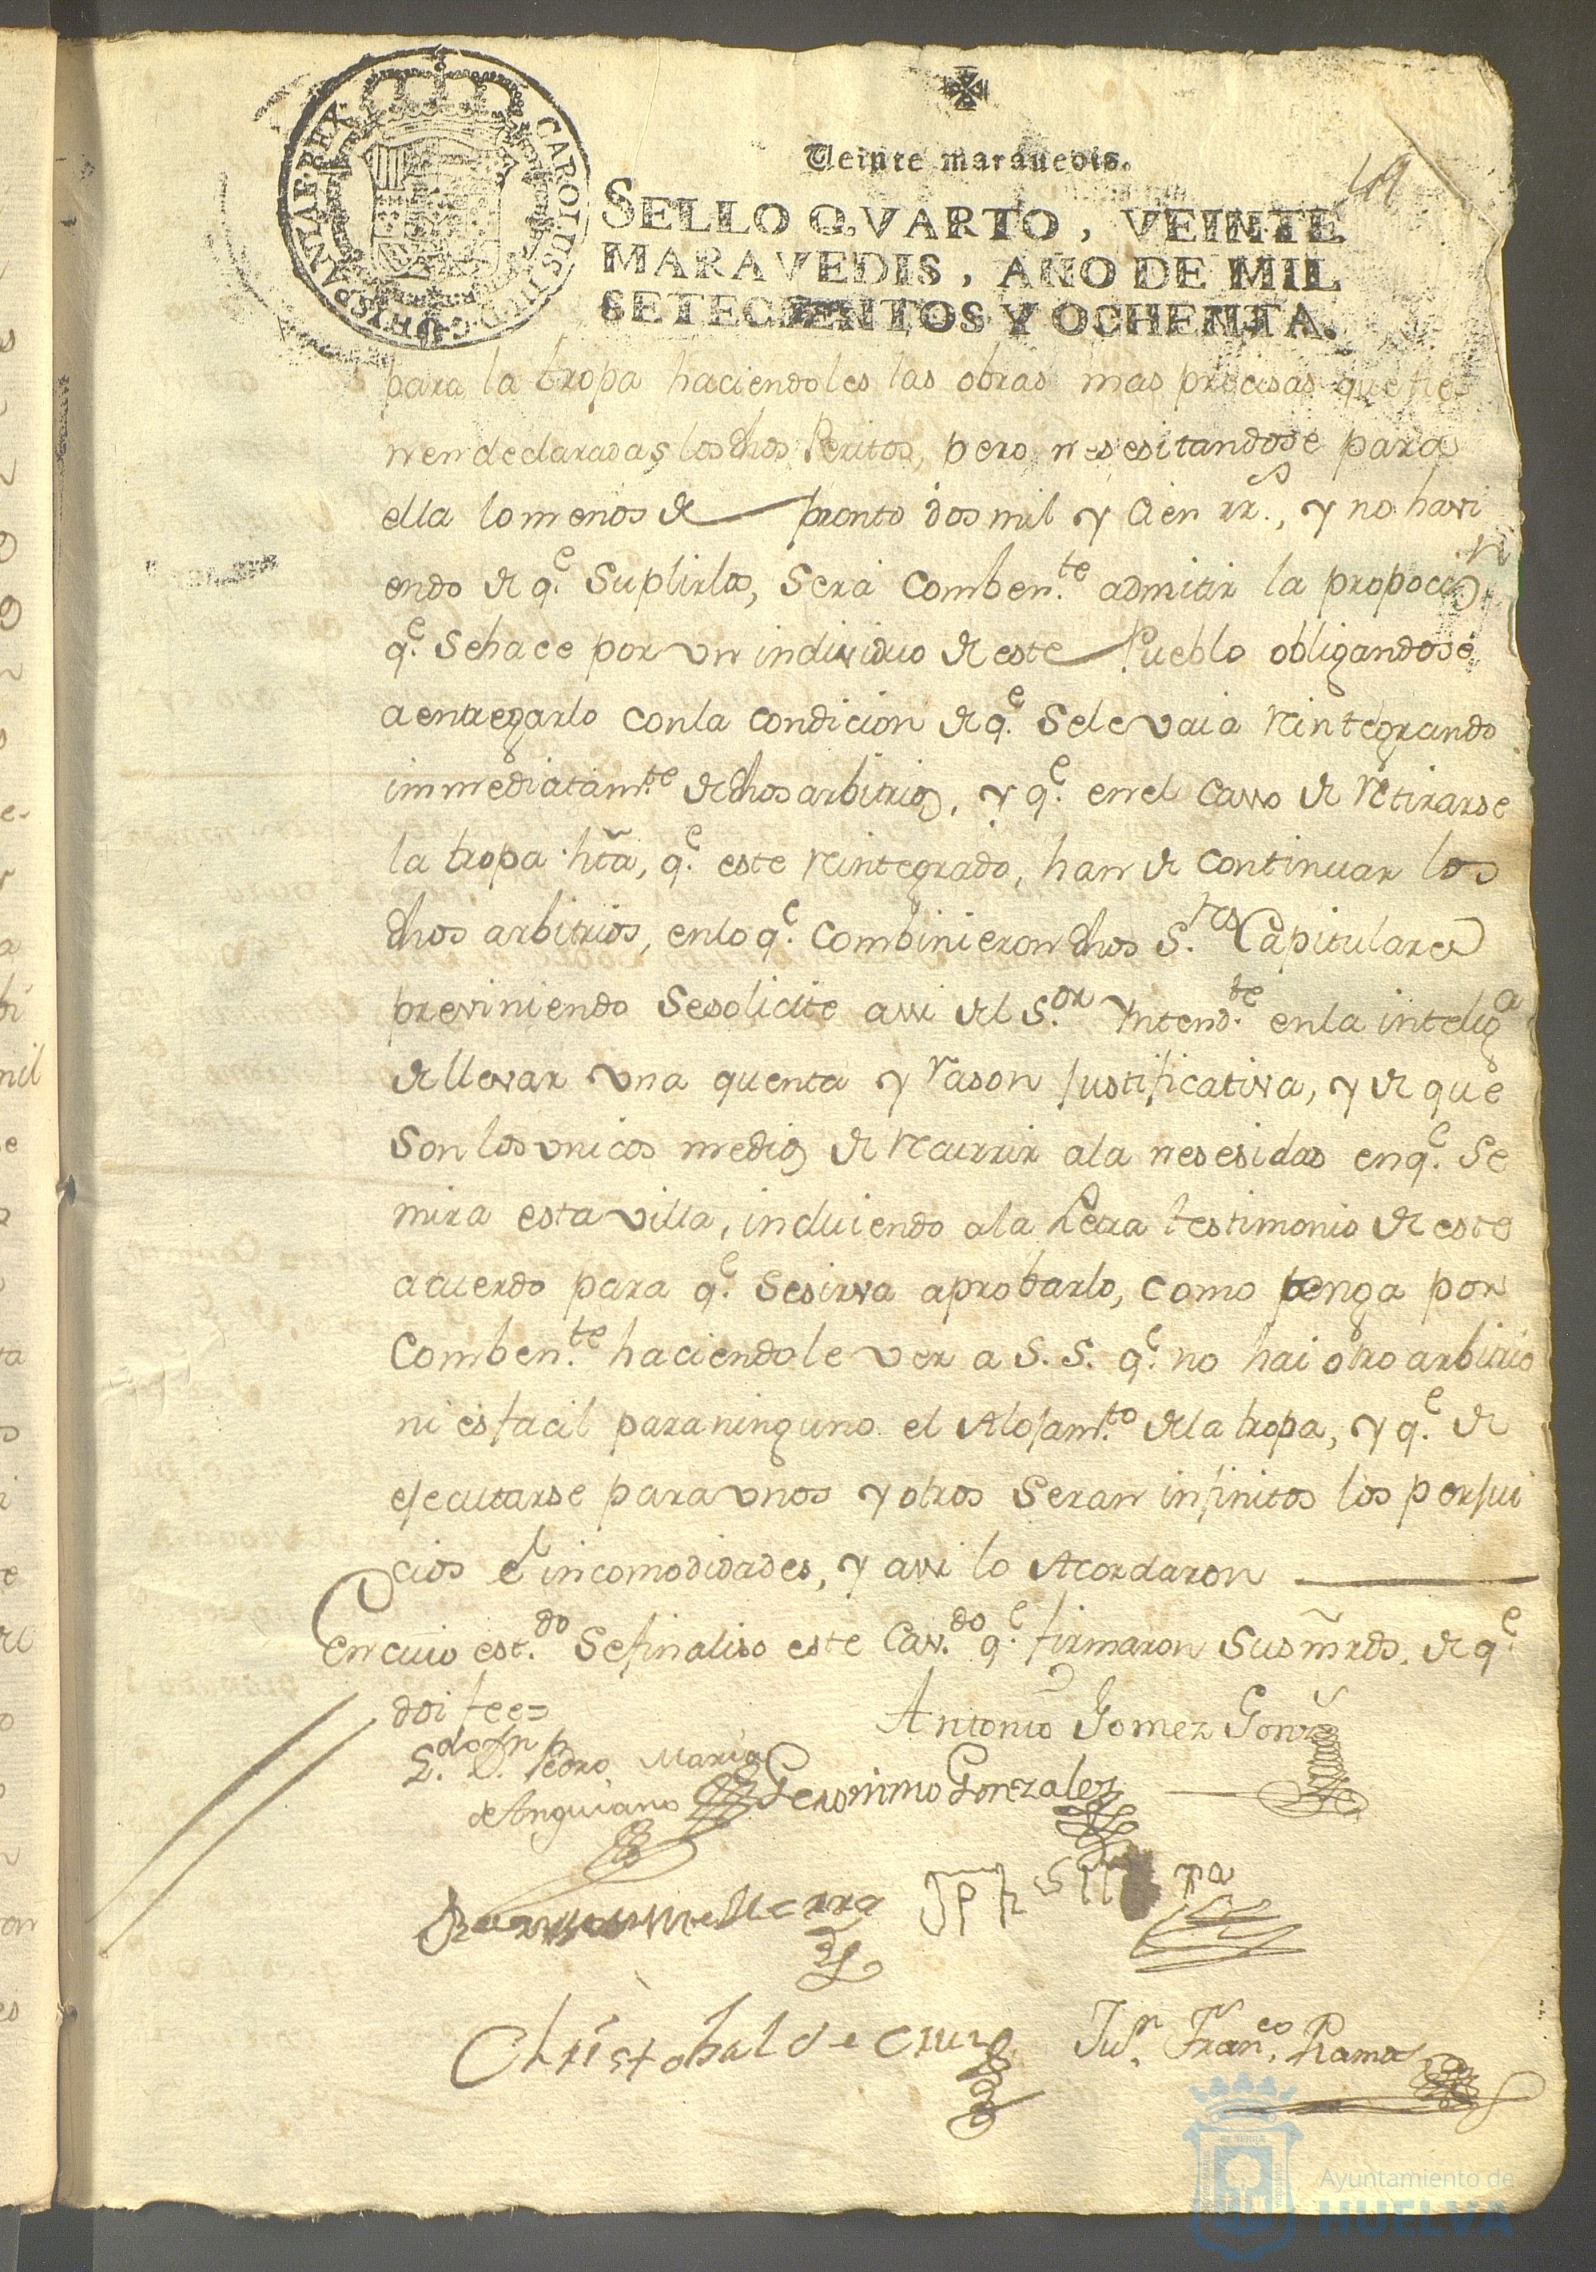 CAROLUS III D G HISPANIAR REX
Veinte maravedis.
49
SELLO QVARTO, VEINTE
MARAVEDIS, AÑO DE MIL
SETECIENTOS Y OCHENTA.
para la tropa haciendoles las obras mas precisas que tie
nen declaradas los dhos Peritos, pero nesesitandose para
ella lo menos de pronto dos mil y cien rr.s, y no havi
endo de q.e suplirlos, será comben.te admitir la propocion
q.e se hace por un individuo de este Pueblo obligandose
a entregarlo con la condicion de q.e se le vaia reintegrando
immediatam.te de dhos arbitrios, y q.e en el casso de retirarse
la tropa hta, q.e este reintegrado, han de continuar los
dhos arbitrios, en lo q.e combinieron dhos S.res Capitulares
previniendo se solicite assi del S.or Yntend.te en la intelig.a
de llevar una quenta y rason justificativa, y de que
son los unicos medios de recurrir a la nesesidad en q.e se
mira esta villa, incluiendo a la Letra testimonio de este
acuerdo para q.e se sirva aprobarlo, como tenga por
comben.te haciendole ver a S. S. q.e no hai otro arbitrio
ni es facil para ninguno el Alojam.to de la tropa, y q.e de
ejecutarse para unos y otros seran infinitos los perjui
cios e incomodidades, y assi lo Acordaron
En cuio est.do se finaliso este Cav.do q.e firmaron sus mrds. de q.e
doi fee=
Antonio Gomez Gonz
L.do Dn Pedro Maria
de Anguiano
Geronimo Gonzalez
Jph
Christobal de Cruz
Ju.n Fran.co Ramos
Ayuntamiento de
HUELVA